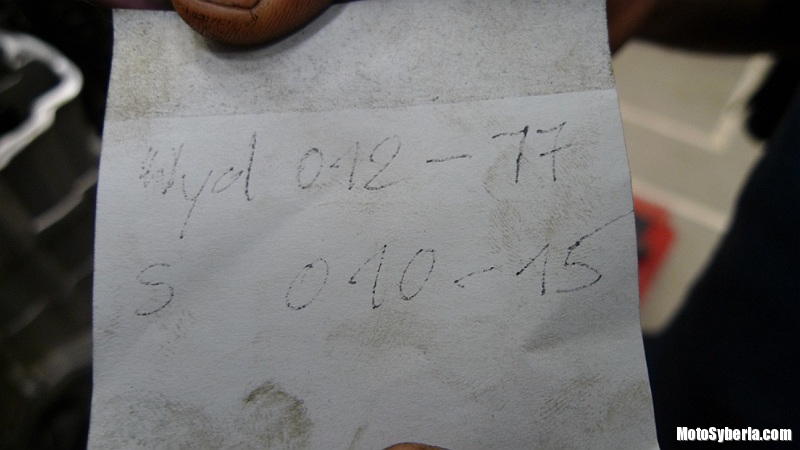 Wyd 012 - 17
S 010 - 15
MotoSyberia.com